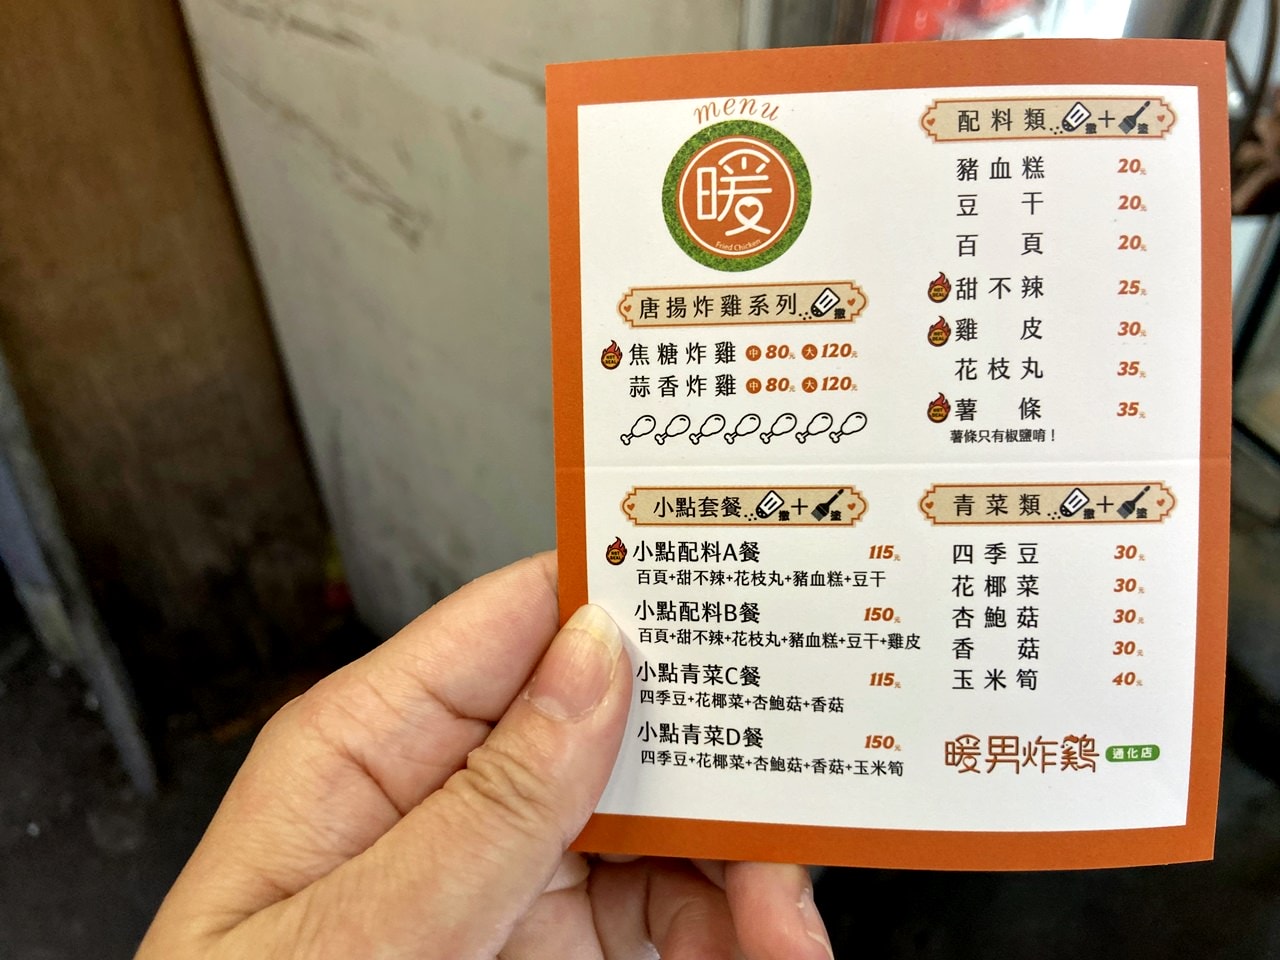 menu
暖
Fried Chicken
唐揚炸雞系列 撒
HOT DEAL 焦糖炸雞 中 80元 大 120元
蒜香炸雞 中 80元 大 120元
配料類 撒+塗
豬血糕 20元
豆干 20元
百頁 20元
HOT DEAL 甜不辣 25元
HOT DEAL 雞皮 30元
花枝丸 35元
HOT DEAL 薯條 35元
薯條只有椒鹽唷！
小點套餐 撒+塗
HOT DEAL 小點配料A餐 115元
百頁+甜不辣+花枝丸+豬血糕+豆干
小點配料B餐 150元
百頁+甜不辣+花枝丸+豬血糕+豆干+雞皮
小點青菜C餐 115元
四季豆+花椰菜+杏鮑菇+香菇
小點青菜D餐 150元
四季豆+花椰菜+杏鮑菇+香菇+玉米筍
青菜類 撒+塗
四季豆 30元
花椰菜 30元
杏鮑菇 30元
香菇 30元
玉米筍 40元
暖男炸鷄 通化店